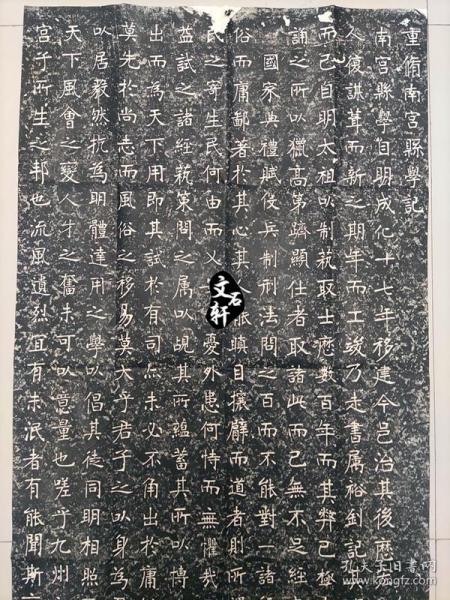 重脩南宮縣學記
南宮縣學自明成化十七年移建今邑治其後歷
人復謀葺而新之期年而工竣乃走書屬裕釗記其
而已自明太祖以制蓺取士歷數百年而其弊已極
誦之所以獵高第躋顯仕者取諸此而已無不足經
國家典禮賦役兵制刑法問之百而不能對一諸
俗而庸鄙著於其心其人能瞋目攘臂而道者則所
民之寄生民何由而乂憂外患何恃而無懼哉
益試之諸經蓺策問之属以覘其所蘊蓄其所以博
出而為天下用即其試於有司亦未必不角出於庸
莫先於尚志而風俗之移易莫大乎君子之以身為
以居毅然抗為明體達用之學以倡其徒同明相照
天下風會之變人才之奮未可以意量也嗟乎九州
宮子所生之邦也流風遺烈宜有未泯者有能聞斯
文石軒
孔夫子旧书网